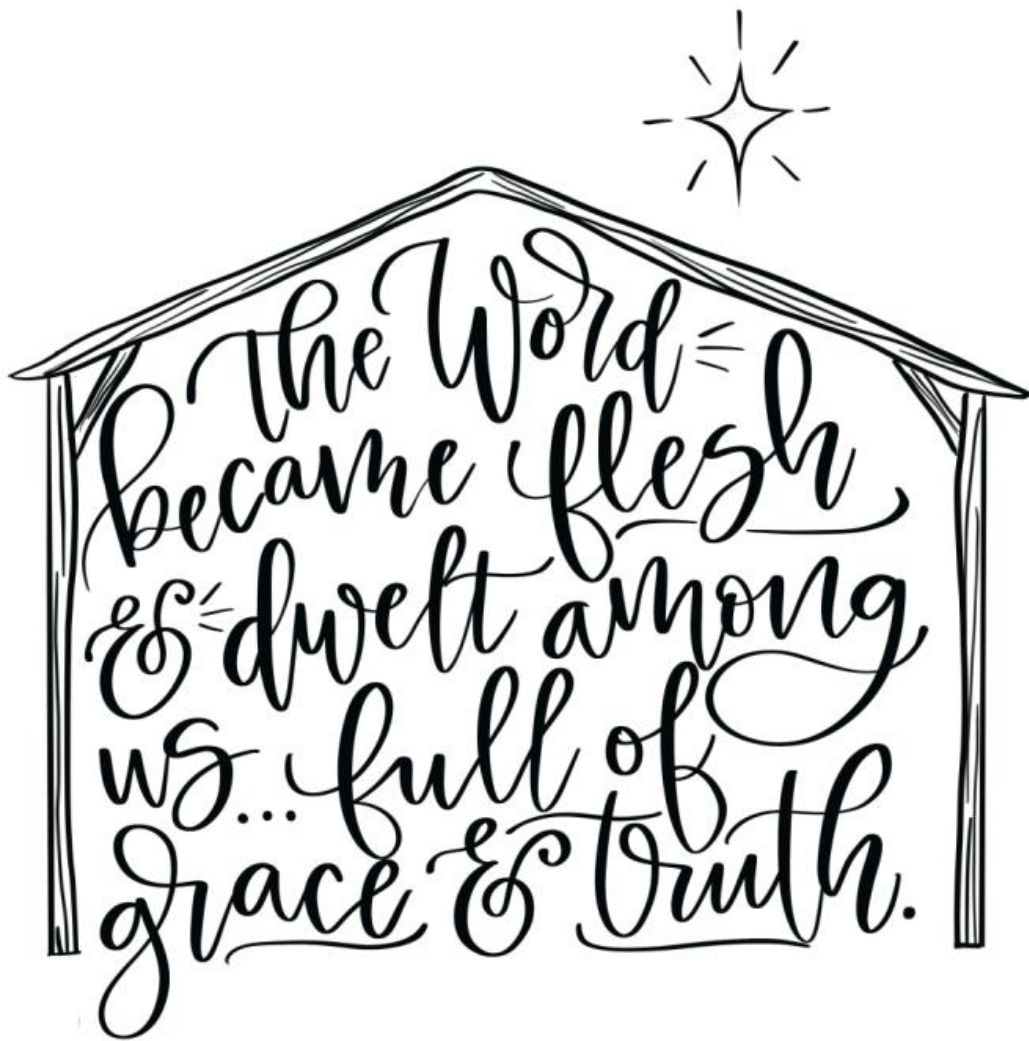 the Word
became flesh
& dwelt among
us... full of
grace & truth.